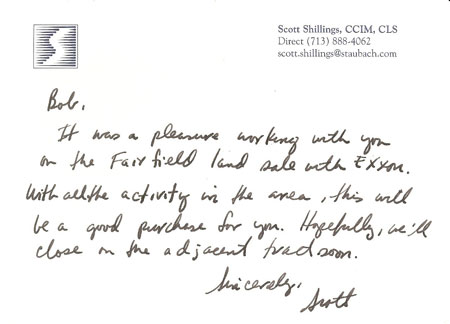 Scott Shillings, CCIM, CLS
Direct (713) 888-4062
scott.shillings@staubach.com
Bob,
It was a pleasure working with you
on the Fairfield land sale with Exxon.
With all the activity in the area, this will
be a good purchase for you. Hopefully, we'll
close on the adjacent tract soon.
Sincerely,
Scott